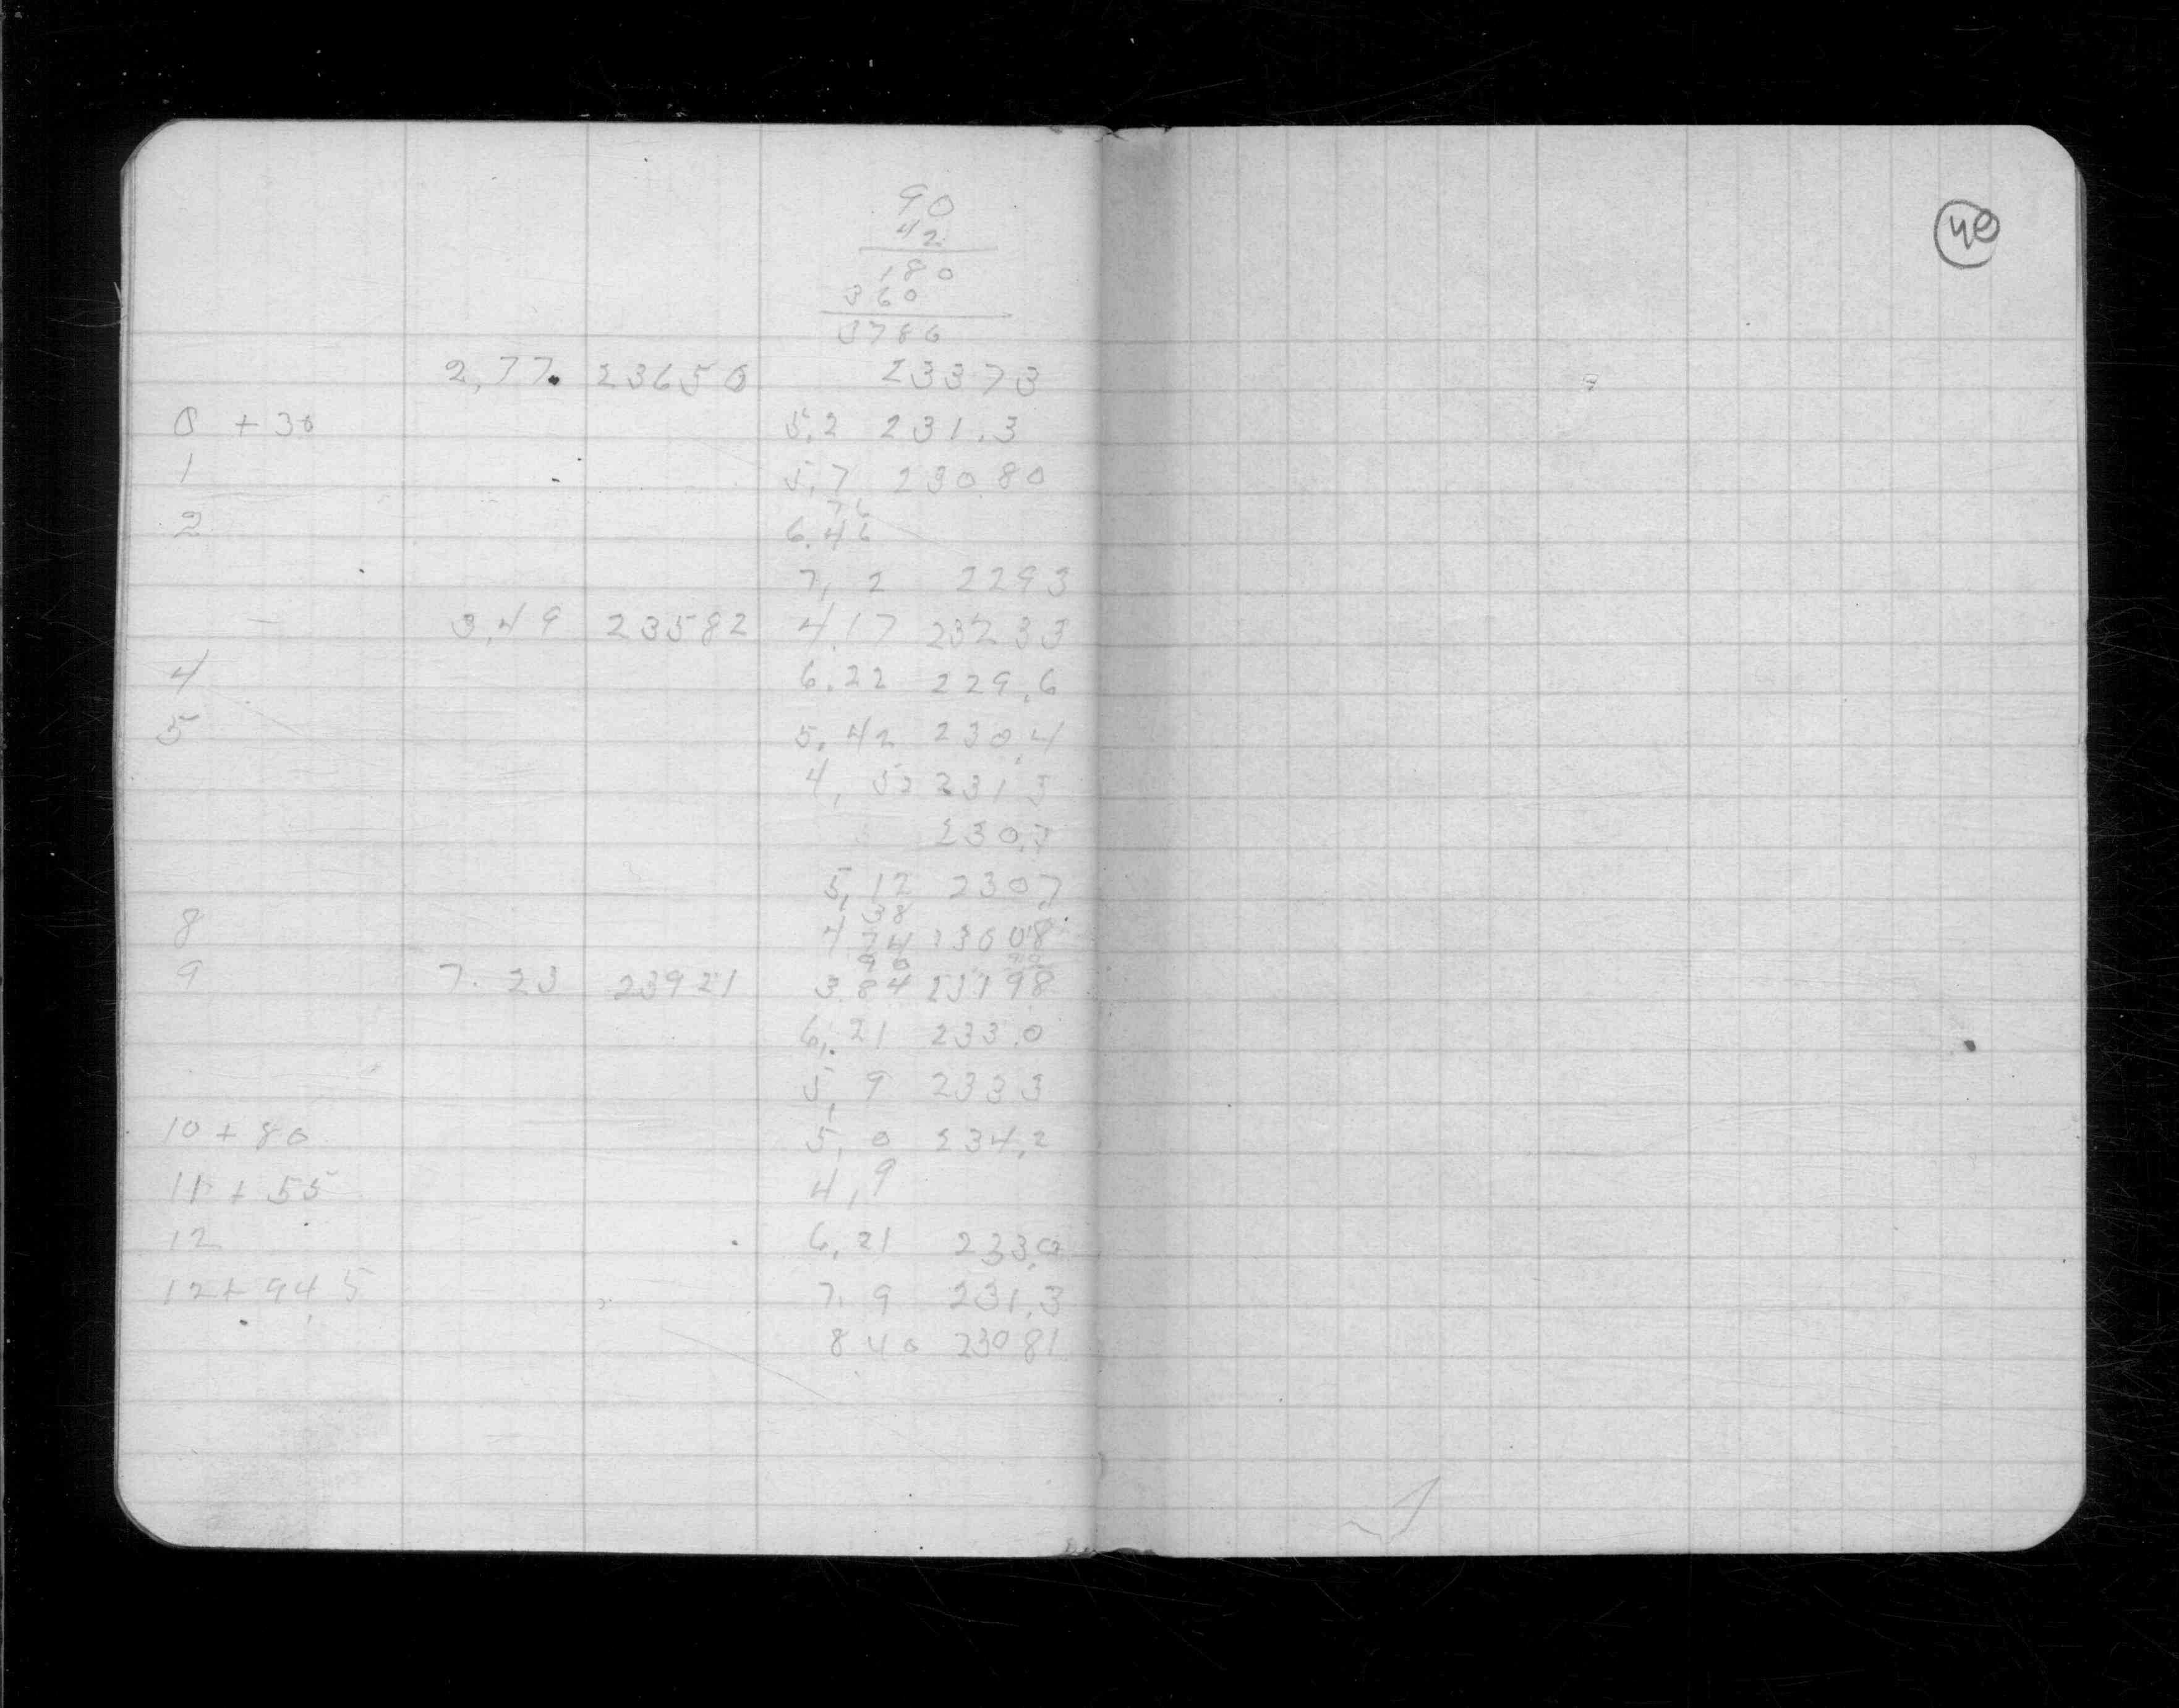 90
42
180
360
3780
2,77. 23650 23373
0 + 30 5,2 231.3
1 5,7 23080
76
2 6.46
7,2 2293
3,49 23582 4.17 23233
4 6.22 229.6
5 5.42 230.4
4, 52 231 3
230.3
5,12 2307
38
8 4.74
9 7. 23 23921 3.84 23198
6,21 233.0
5, 9 2333
10 + 80 5, 0 234.2
11 + 55 4,9
12 6,21 233.0
12 + 94.5 7. 9 231.3
8 40 230 81
40